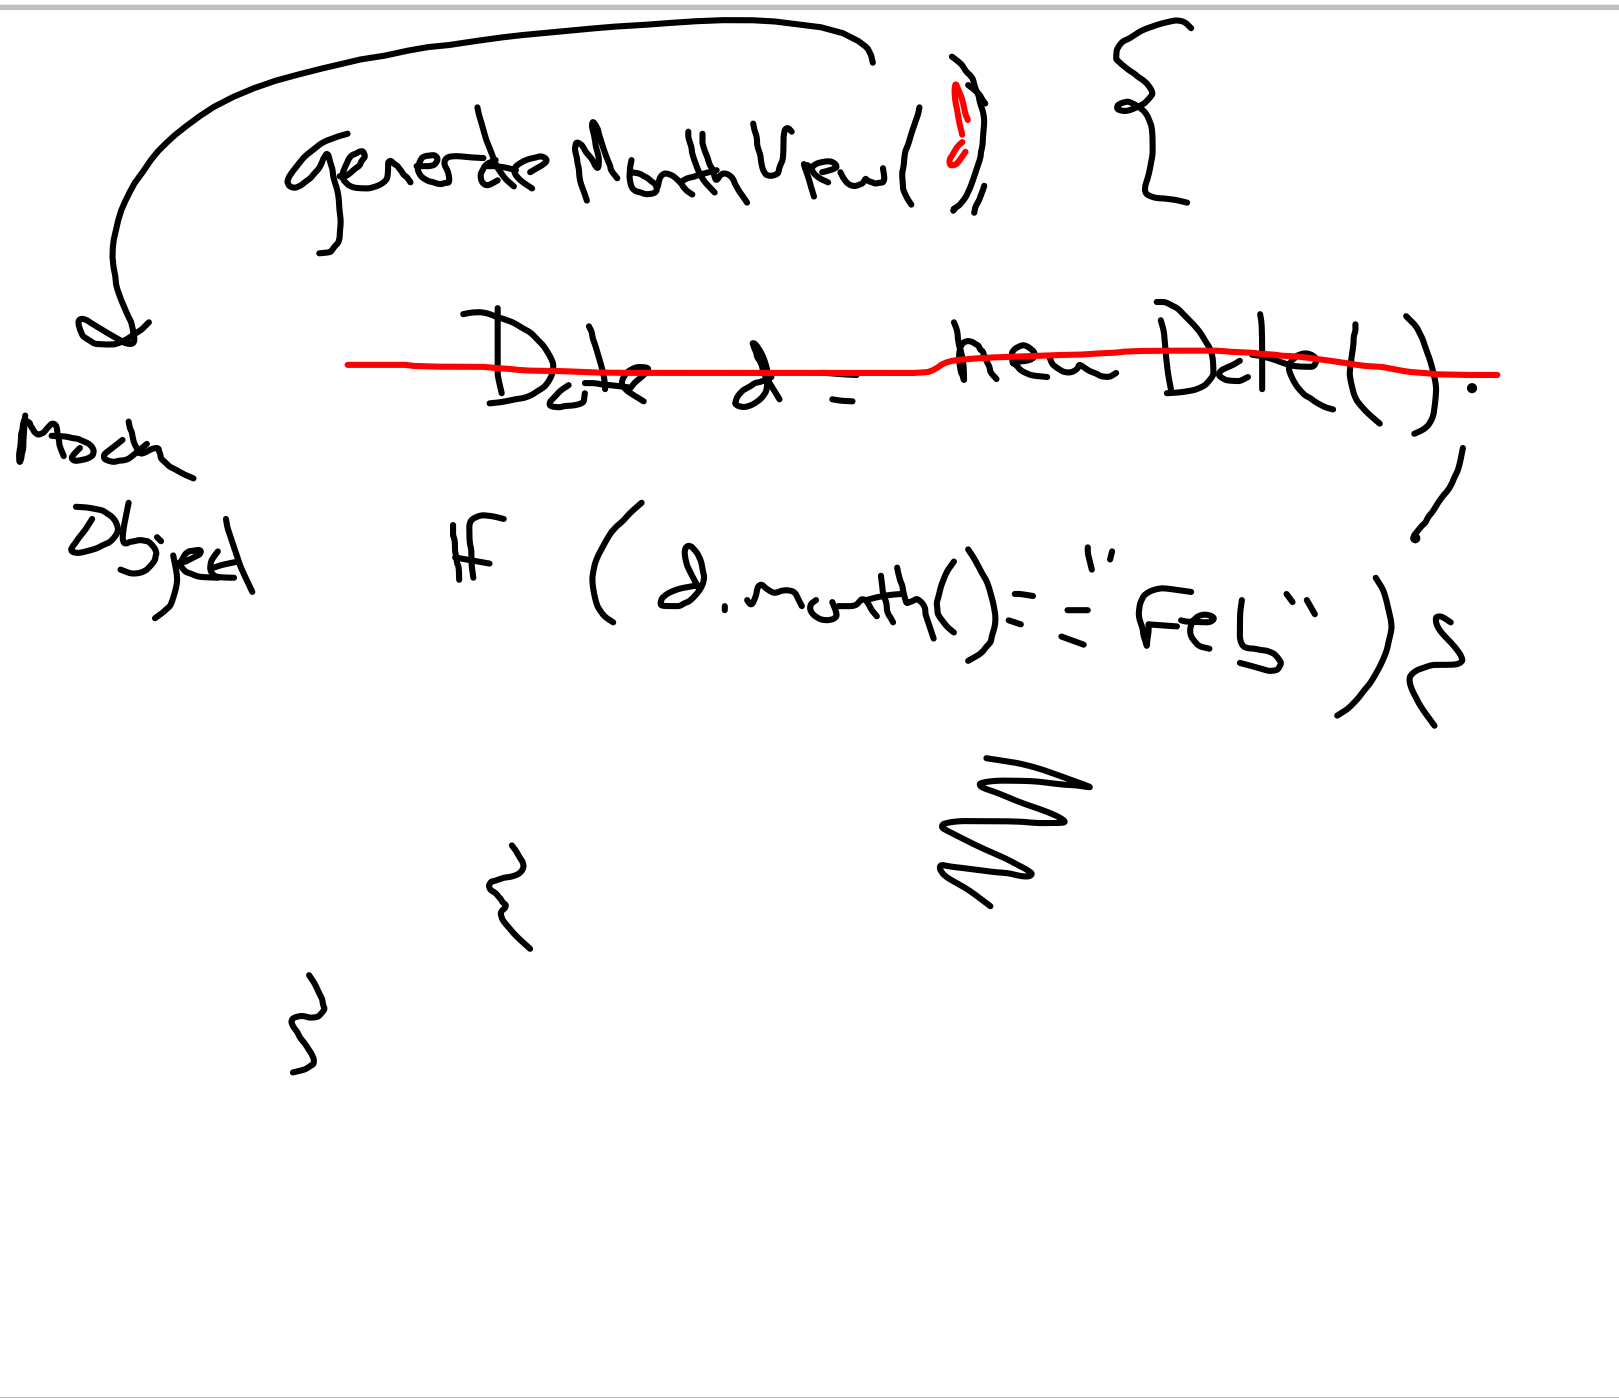 generateMonthView() {
Date d = new Date();
Mock
Object
if (d.month() == "Feb") {
}
}